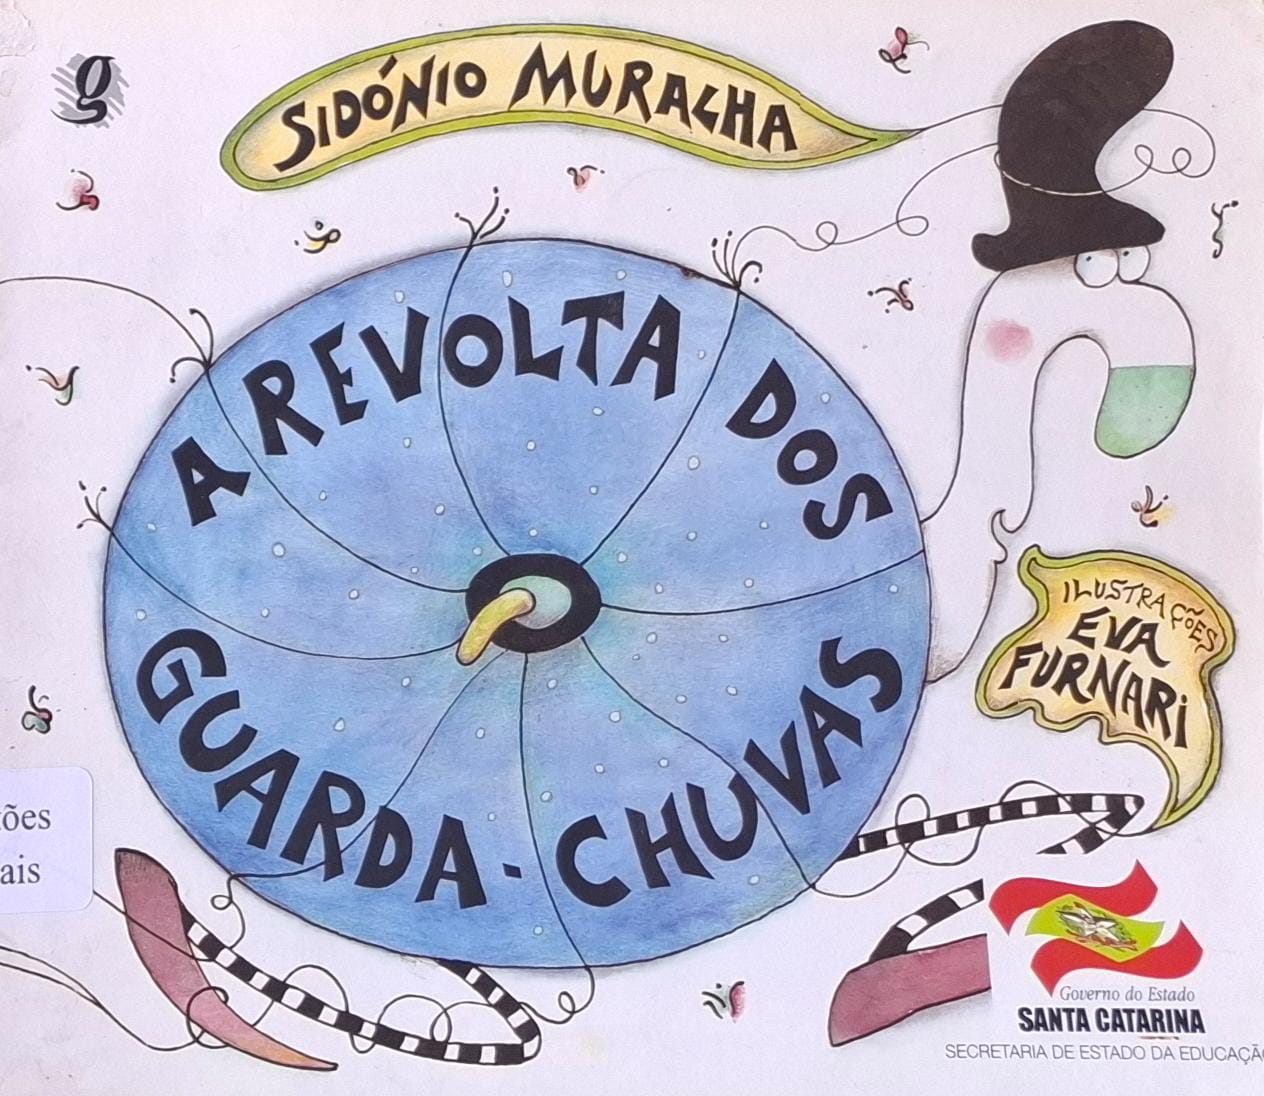 g
SIDÓNIO MURALHA
A REVOLTA DOS
GUARDA-CHUVAS
ILUSTRAÇÕES
EVA
FURNARI
tões
ais
Governo do Estado
SANTA CATARINA
SECRETARIA DE ESTADO DA EDUCAÇÃO